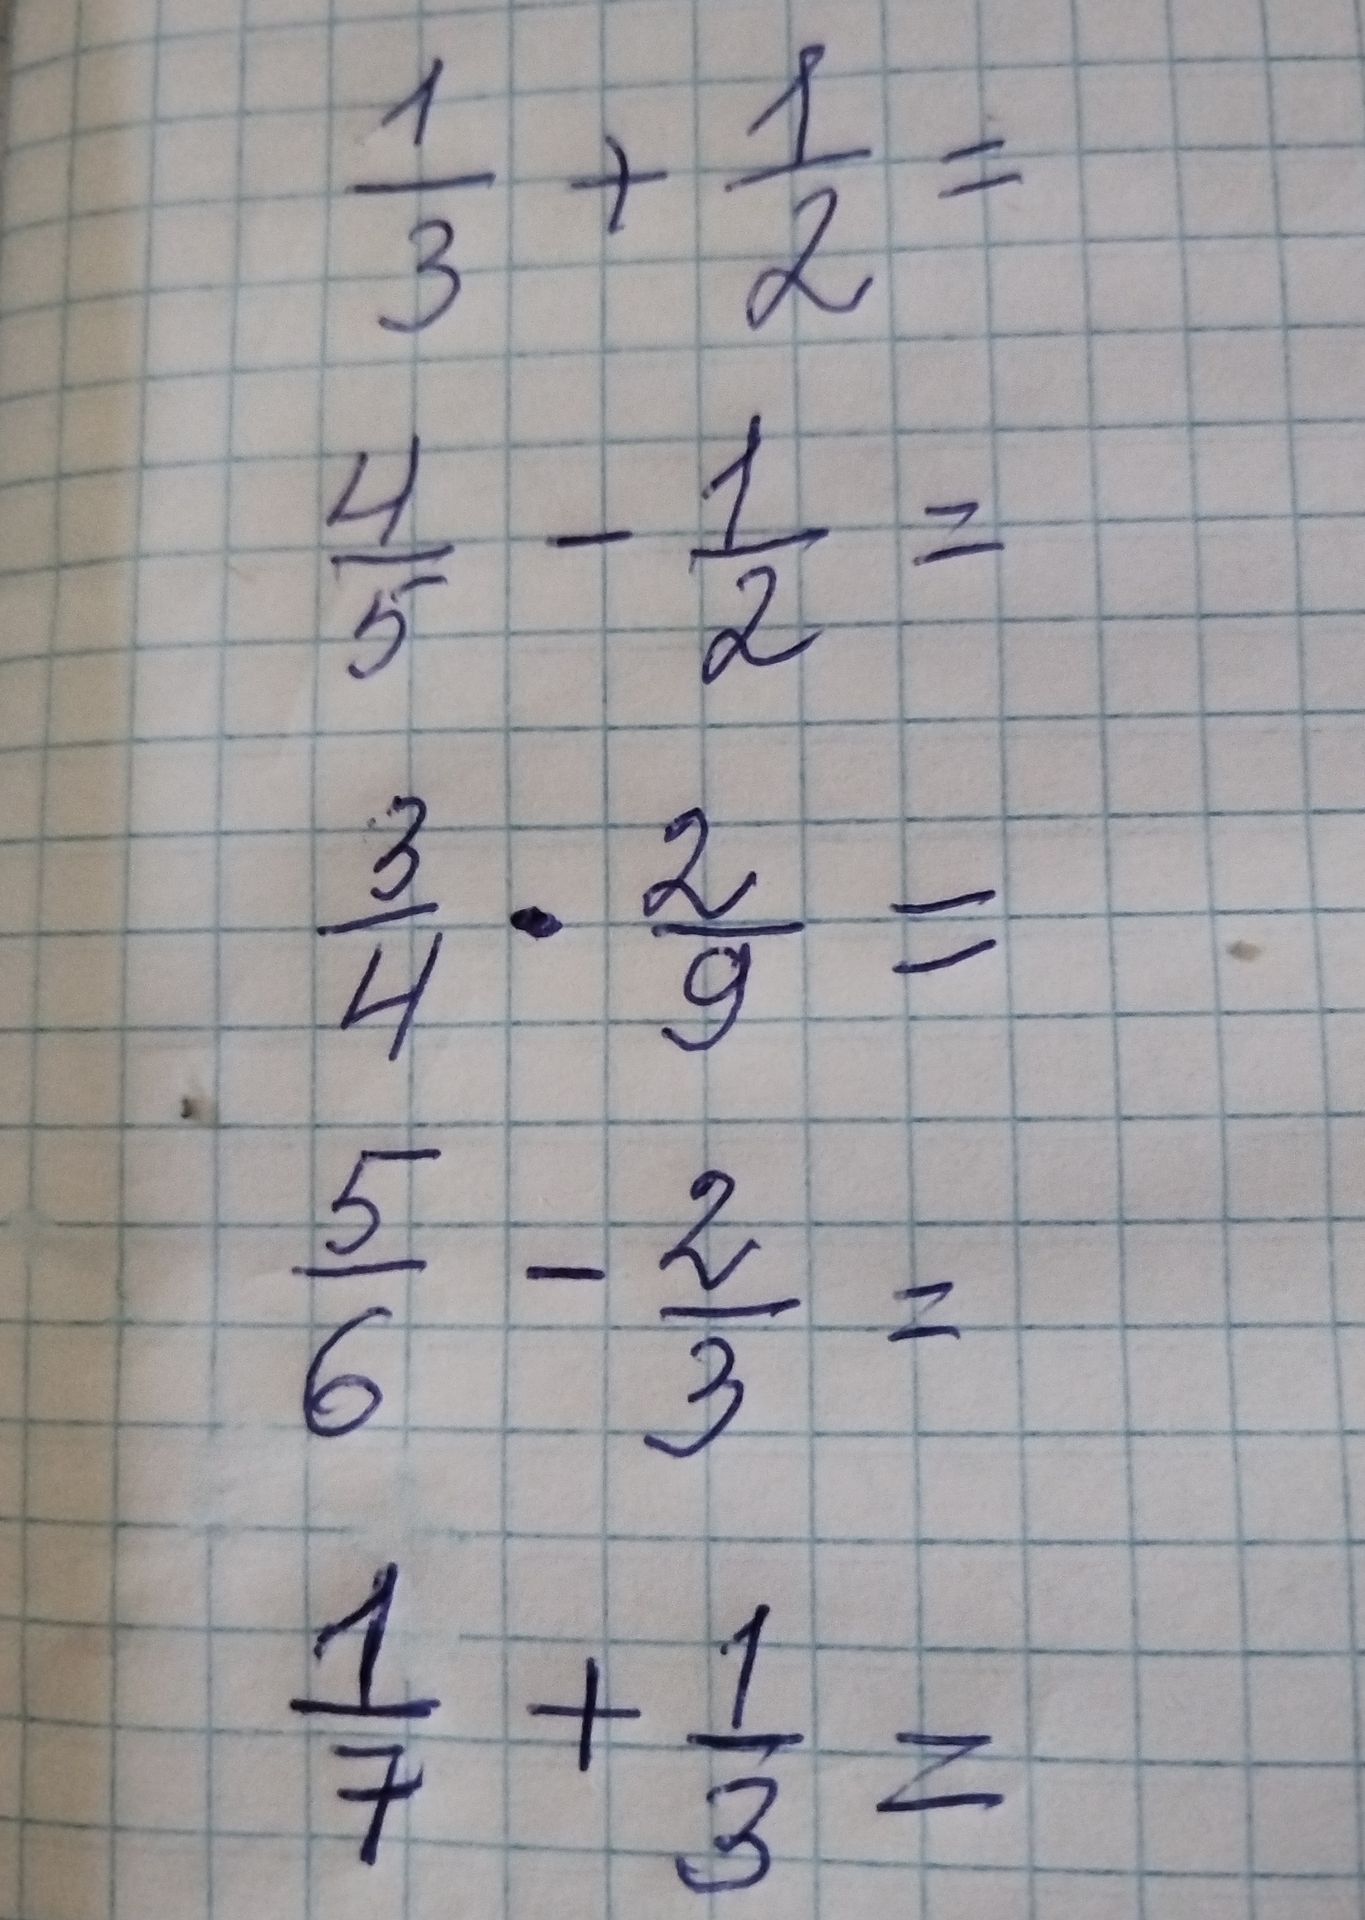 1/3 + 1/2 =
4/5 - 1/2 =
3/4 · 2/9 =
5/6 - 2/3 =
1/7 + 1/3 =